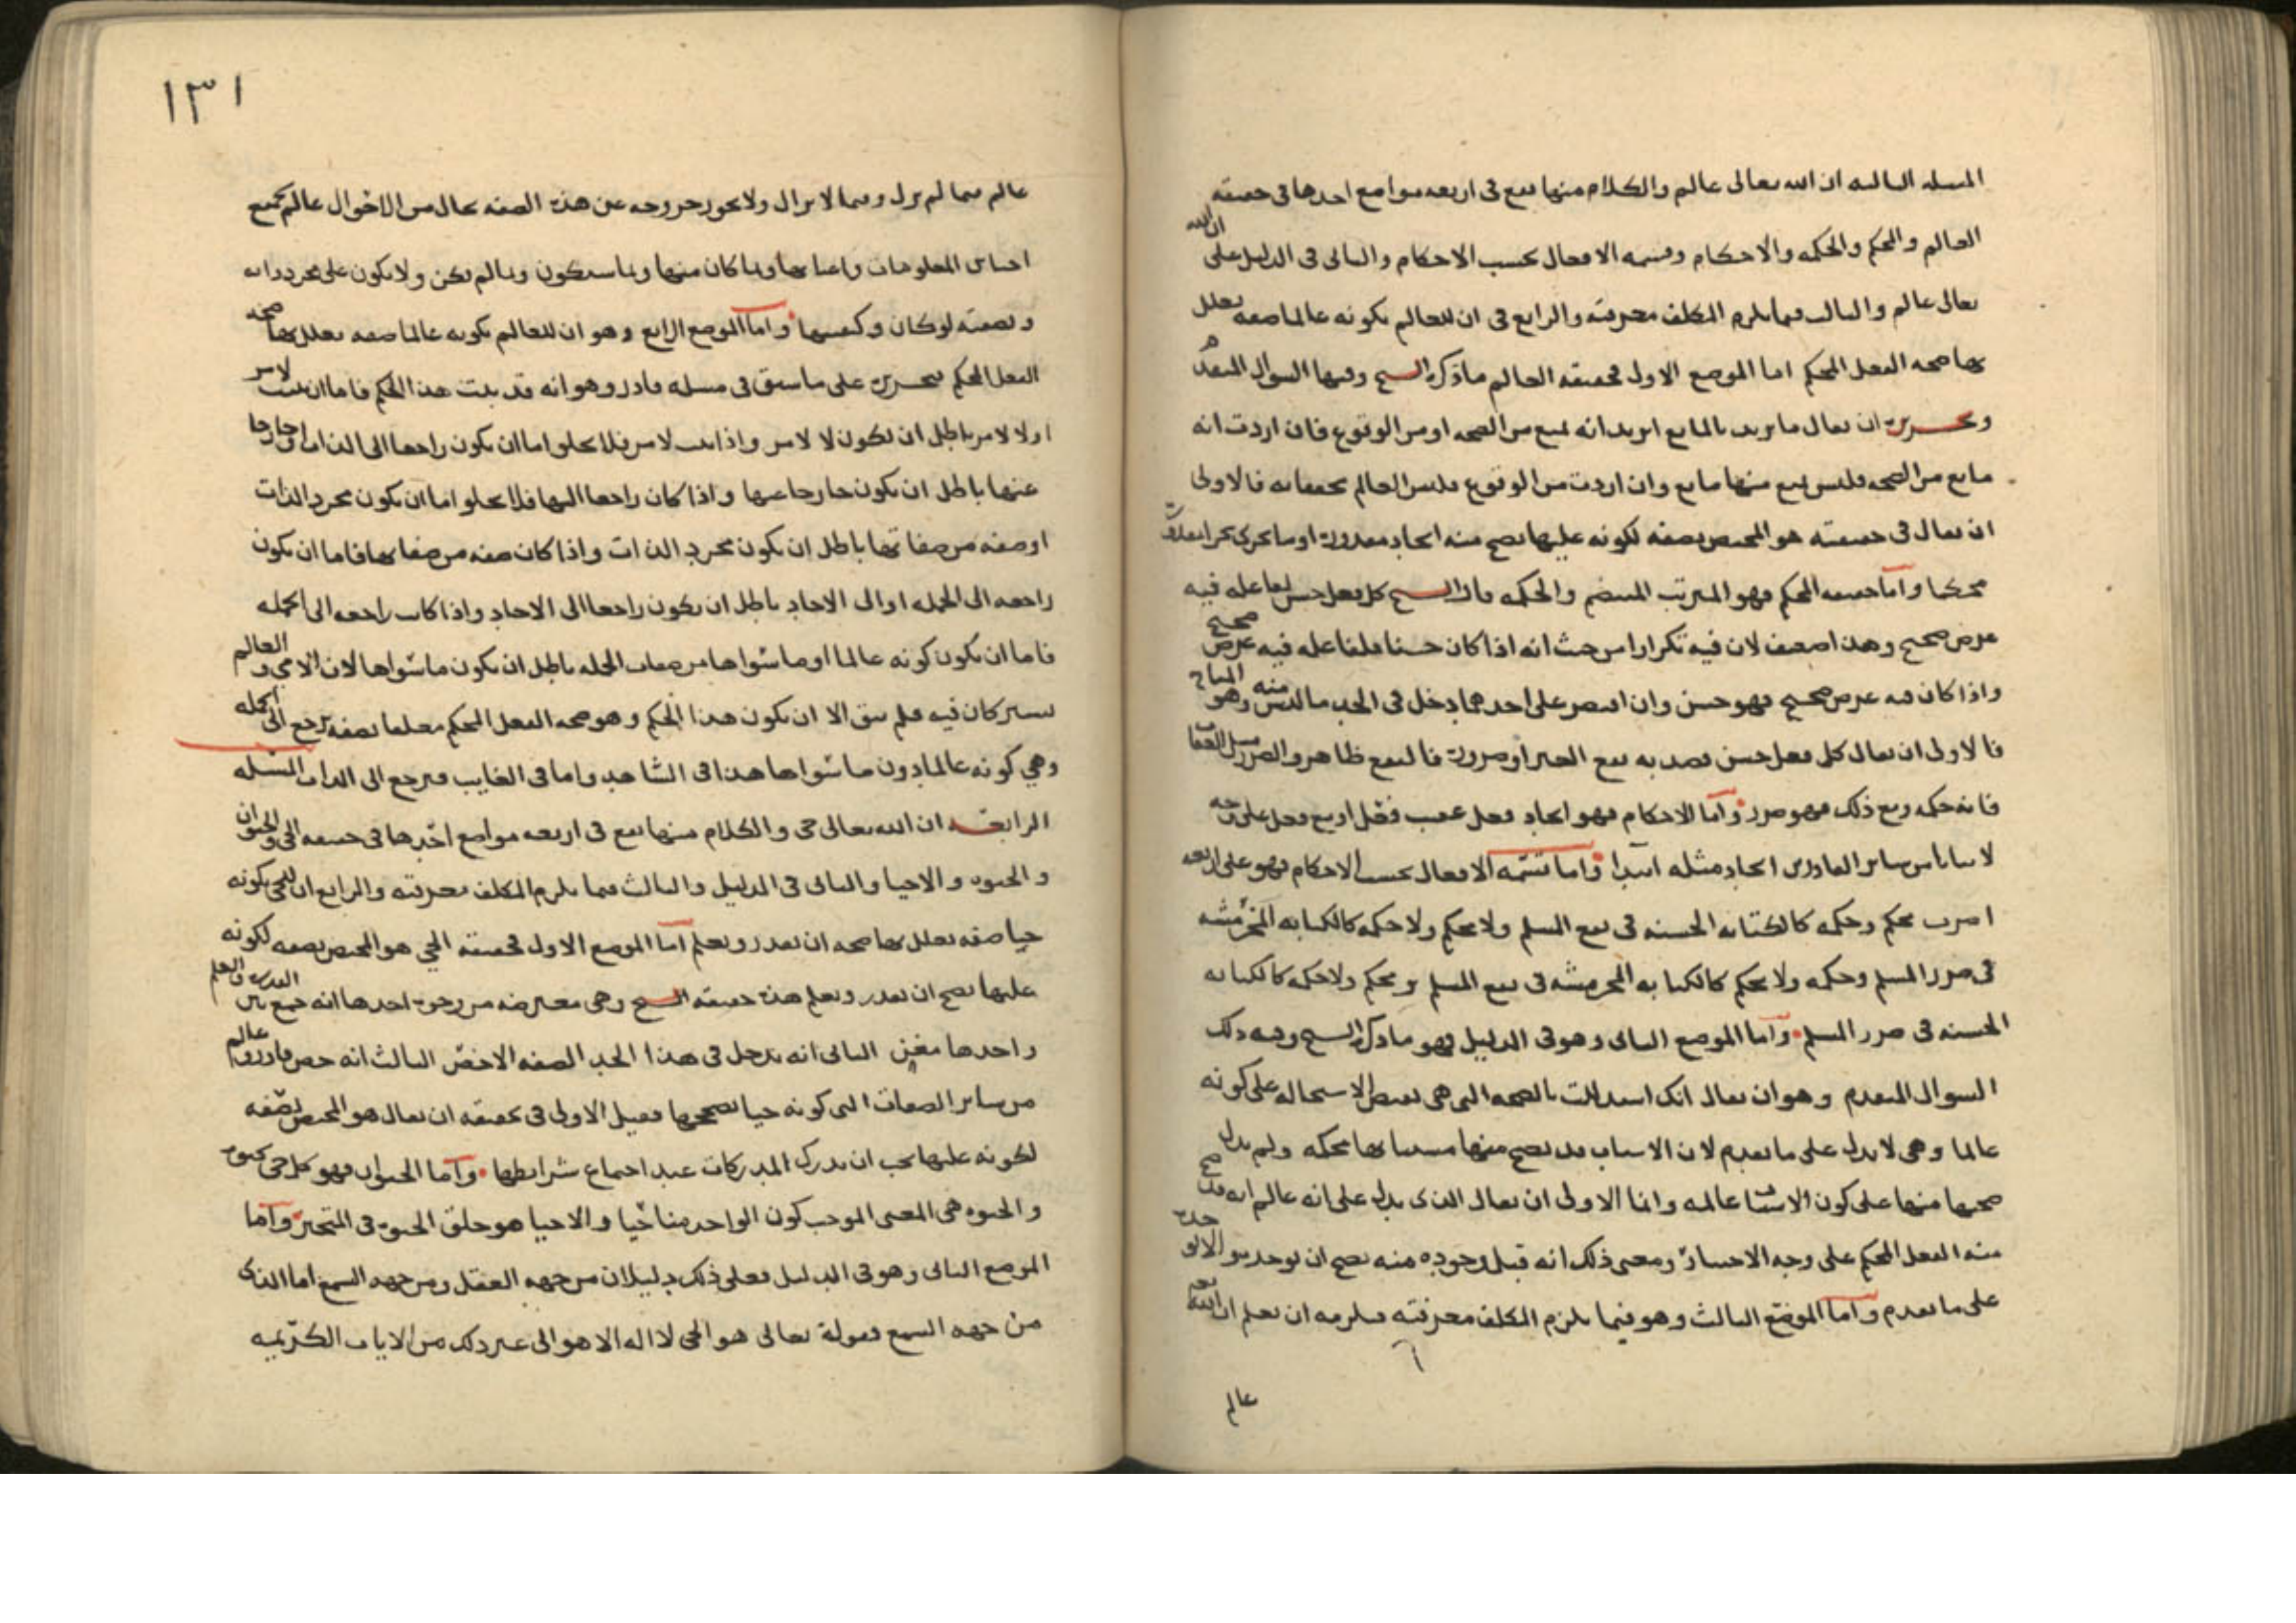 المسله الثالثه ان الله تعالى عالم والكلام منها يقع فى اربعه مواضع احدها فى حقيقه
العالم والمحكم والحكمه والاحكام وقسمه الافعال بحسب الاحكام والثانى فى الدليل على ان الله
تعالى عالم والثالث فيما يلزم المكلف معرفته والرابع فى ان للعالم بكونه عالما صفه يعلل
بها صحه الفعل المحكم اما الموضع الاول فحقيقه العالم ما ذكره الشيخ وفيها السوال المتقدم
وتحريره ان يقال ما يريد بالمانع اتريد انه يمنع من الصحه او من الوقوع فان اردت انه
مانع من الصحه فليس يمنع منها مانع وان اردت من الوقوع فليس العالم بحقيقه فالاولى
ان يقال فى حقيقته هو المختص بصفه لكونه عليها يصح منه ايجاد مقدوره او ما يجرى مجرى مقدوره
محكما واما حقيقه المحكم فهو المترتب المنتظم والحكمه قال الشيخ كل فعل حسن لفاعله فيه
غرض صحيح وهذا ضعيف لان فيه تكرارا من حيث انه اذا كان حسنا فلفاعله فيه غرض صحيح
واذا كان فيه غرض صحيح فهو حسن وان اقتصر على احدهما دخل فى الحد ما ليس منه وهو المباح
فالاولى ان يقال كل فعل حسن قصد به نفع الغير او ضرره فالنفع ظاهر والضرر مثل العقاب
فانه حكمه ومع ذلك فهو ضرر واما الاحكام فهو ايجاد فعل عقيب فعل او مع فعل على وجه
لا يتاتا من ساير القادرين ايجاد مثله ابتدا واما قسمه الافعال بحسب الاحكام فهو على اربعه
اضرب محكم وحكمه كالكتابه الحسنه فى نفع المسلم ولا محكم ولا حكمه كالكتابه المخرمشه
فى ضرر المسلم وحكمه ولا محكم كالكتابه المخرمشه فى نفع المسلم ومحكم ولا حكمه كالكتابه
الحسنه فى ضرر المسلم واما الموضع الثانى وهو فى الدليل فهو ما ذكره الشيخ وفيه ذلك
السوال المتقدم وهو ان يقال انك استدللت بالصحه التى هى نقيض الاستحاله على كونه
عالما وهى لا تدل على ما تقدم لان الاسباب قد تصح منها مسبباتها محكمه ولم يدل
صحتها منها على كون الاسباب عالمه وانما الاولى ان يقال الذى يدل على انه عالم انه قد صح
منه الفعل المحكم على وجه الاختيار ومعنى ذلك انه قبل وجوده منه يصح ان يوجد وان لا يوجد
على ما تقدم واما الموضع الثالث وهو فيما يلزم المكلف معرفته فيلزمه ان يعلم ان الله تعالى
عالم
١٣١
عالم فيما لم يزل وفيما لا يزال ولا يجوز خروجه عن هذه الصفه بحال من الاحوال عالم بجميع
اجناس المعلومات واعيانها وما كان منها وما سيكون وما لم يكن ولا يكون على مجرد ذاته
وبصفته لو كان وكيفيتها واما الموضع الرابع وهو ان للعالم بكونه عالما صفه يعلل بها صحه
الفعل المحكم فتحريره على ما سبق فى مسله قادر وهو انه قد ثبت هذا الحكم فاما ان يثبت لامر
او لا لامر باطل ان تكون لا لامر واذا ثبت لامر فلا يخلو اما ان يكون راجعا الى الذات او خارجا
عنها باطل ان يكون خارجا عنها واذا كان راجعا اليها فلا يخلو اما ان يكون مجرد الذات
او صفه من صفاتها باطل ان يكون مجرد الذات واذا كان صفه من صفاتها فاما ان يكون
راجعه الى الجمله او الى الاحاد باطل ان يكون راجعا الى الاحاد واذا كانت راجعه الى الجمله
فاما ان يكون كونه عالما او ما سواها من صفات الجمله باطل ان يكون ما سواها لان الامى والعالم
يشتركان فيه فلم يبق الا ان يكون هذا الحكم وهو صحه الفعل المحكم معللا بصفه ترجع الى الجمله
وهي كونه عالما دون ما سواها هذا فى الشاهد واما فى الغايب فترجع الى الذات المسله
الرابعه ان الله تعالى حى والكلام منها يقع فى اربعه مواضع احدها فى حقيقه الحى والحيوان
والحيوه والاحيا والثانى فى الدليل والثالث فيما يلزم المكلف معرفته والرابع ان للحى بكونه
حيا صفه يعلل بها صحه ان يقدر ويعلم اما الموضع الاول فحقيقه الحي هو المختص بصفه لكونه
عليها يصح ان يقدر ويعلم هذه حقيقه الشيخ وهى معترضه من وجوه احدها انه جمع بين القدره والعلم
واحدها مغن الثانى انه يدخل فى هذا الحد الصفه الاخص الثالث انه خص قادر وعالم
من ساير الصفات التى كونه حيا يصححها فقيل الاولى فى حقيقه ان يقال هو المختص بصفه
لكونه عليها يجب ان يدرك المدركات عند اجتماع شرايطها واما الحيوان فهو كل حى بحيوه
والحيوه هى المعنى الموجب كون الواحد منا حيا والاحيا هو خلق الحيوه فى المتحيز واما
الموضع الثانى وهو فى الدليل فعلى ذلك دليلان من جهه العقل ومن جهه السمع اما الذى
من جهه السمع فقوله تعالى هو الحى لا اله الا هو الى غير ذلك من الايات الكريمه